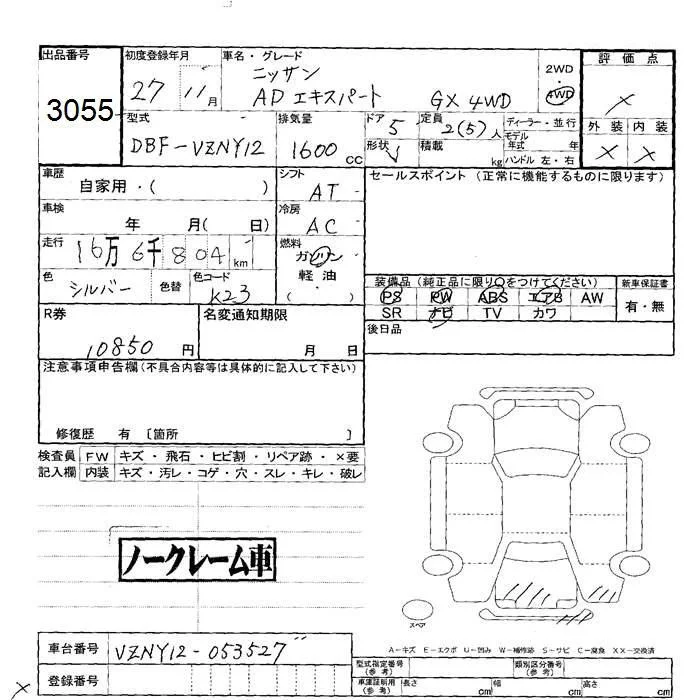 出品番号 初度登録年月 車名・グレード 2WD 評価点
3055 27 11月 ニッサン 4WD ×
ADエキスパート GX 4WD
型式 排気量 ドア 5 定員 2(5)人 ディーラー・並行 外装 内装
DBF-VZNY12 1600cc 形状 V 積載 kg モデル年式 年 × ×
ハンドル 左・右
車歴 シフト セールスポイント (正常に機能するものに限ります)
自家用・( ) AT
車検 年 月( 日) 冷房 AC
走行 16万6千804km 燃料 ガソリン
軽・油
( )
色 シルバー 色替 色コード K23
装備品(純正品に限り○をつけてください) 新車保証書
PS PW ABS エアB AW 有・無
SR ナビ TV カワ
R券 名変通知期限 後日品
10850円 月 日
注意事項申告欄(不具合内容等は具体的に記入して下さい)
修復歴 有 〔箇所 〕
検査員 FW キズ・飛石・ヒビ割・リペア跡・×要
記入欄 内装 キズ・汚レ・コゲ・穴・スレ・キレ・破レ
ノークレーム車
スペア
A-キズ E-エクボ U-凹み W-補修跡 S-サビ C-腐食 XX-交換済
車台番号 VZNY12-053527
型式指定番号(参考) 類別区分番号(参考)
登録番号
車庫証明用(参考) 長さ cm 幅 cm 高さ cm
×